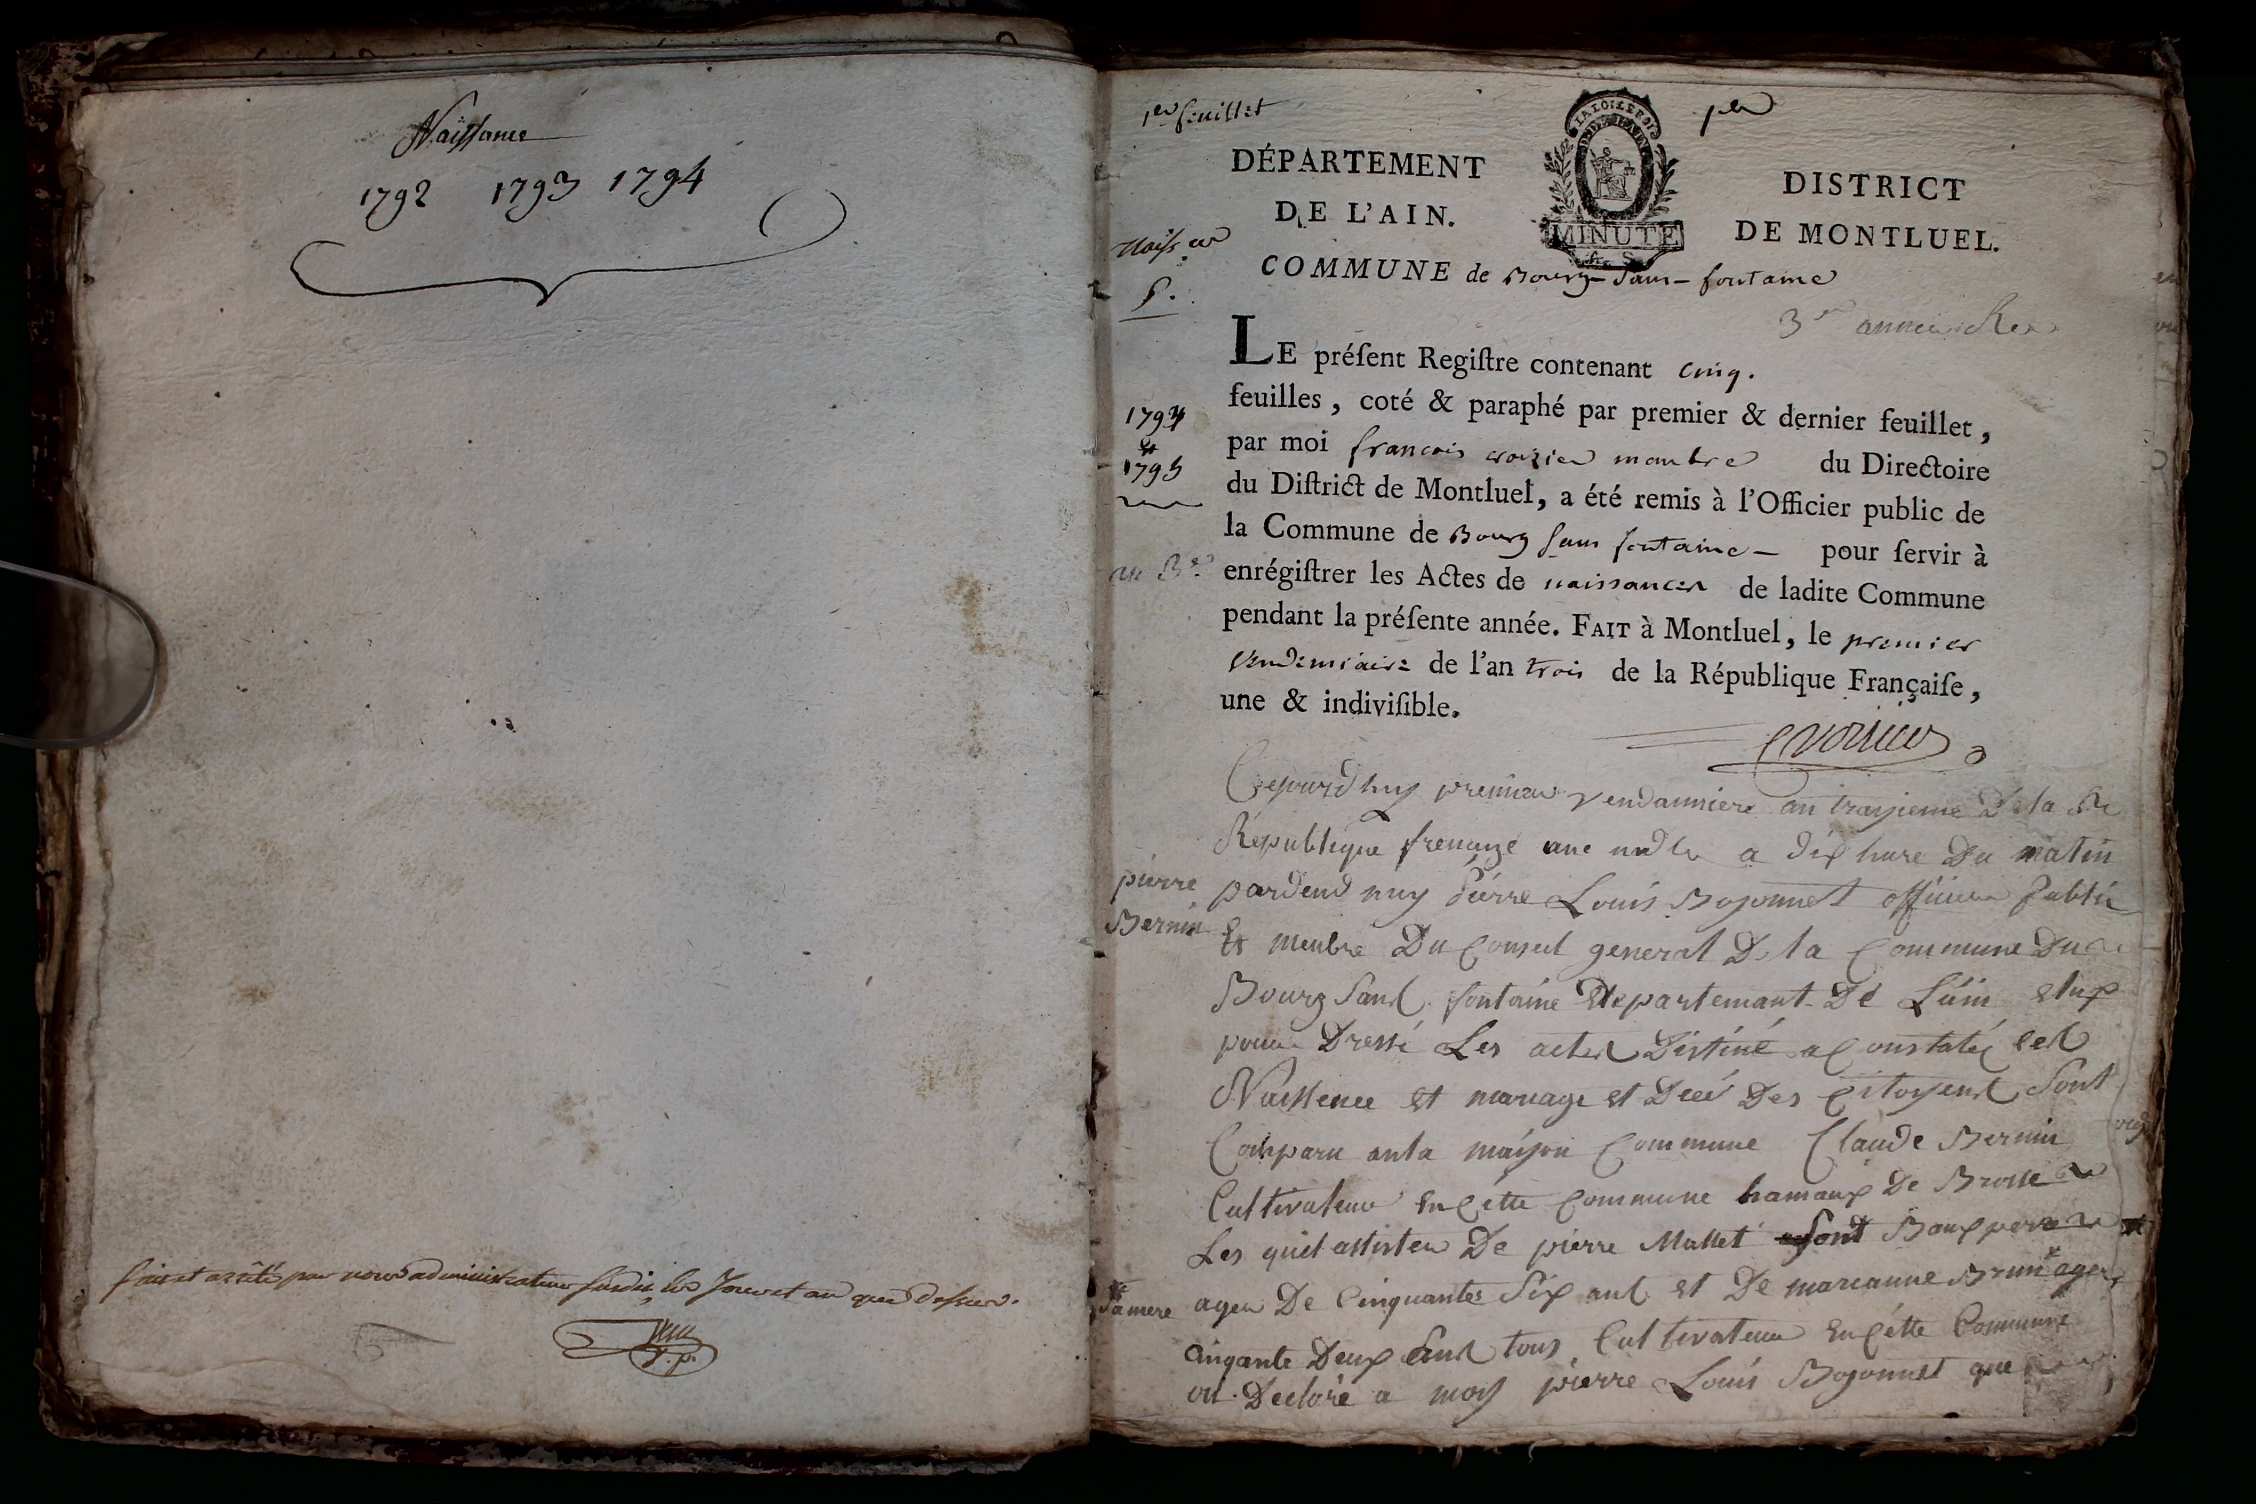 Naissance
1792 1793 1794
fait et arrêté par nous administrateur susdit les jour et an que dessus.
1er feuillet
per
LA LOI LE ROI
MINUTE
DÉPARTEMENT
DE L'AIN.
DISTRICT
DE MONTLUEL.
COMMUNE de Bourg-Sans-fontaine
3e année
LE préſent Regiſtre contenant cinq.
feuilles, coté & paraphé par premier & dernier feuillet,
par moi francois croizier membre du Directoire
du Diſtrict de Montluel, a été remis à l'Officier public de
la Commune de Bourg sans fontaine – pour ſervir à
enrégiſtrer les Actes de naissances de ladite Commune
pendant la préſente année. FAIT à Montluel, le premier
vendemiaire de l'an trois de la République Françaiſe,
une & indiviſible.
1794
et
1795
an 3e
Cejourdhuy premier vendanniere an troisieme De la
Republique frencaize une a dix hure Du matin
pierre
Bernin
pardend muy Pierre Louis Bojonnet officier Public
Et menbre Du Conseil general De la Commune Du
Bourg Sans fontaine Departemant De Lain elup
pour Dressé Les actes Destiné a Constaté les
Naissence et mariage et Decé Des Citoyens Sont
Comparu anla maison Commune Claude Bernin
Cultivateur En Cette Commune hamaux De Brosse
Les quel assister De pierre Mallet Sont Baux pere
ager De Cinquantes Six ans et De marianne Brun ager
Sa mere
Cinqante Deux ans tous Cultivateur En Cette Commune
on Declaré a moy pierre Louis Bojonnet que